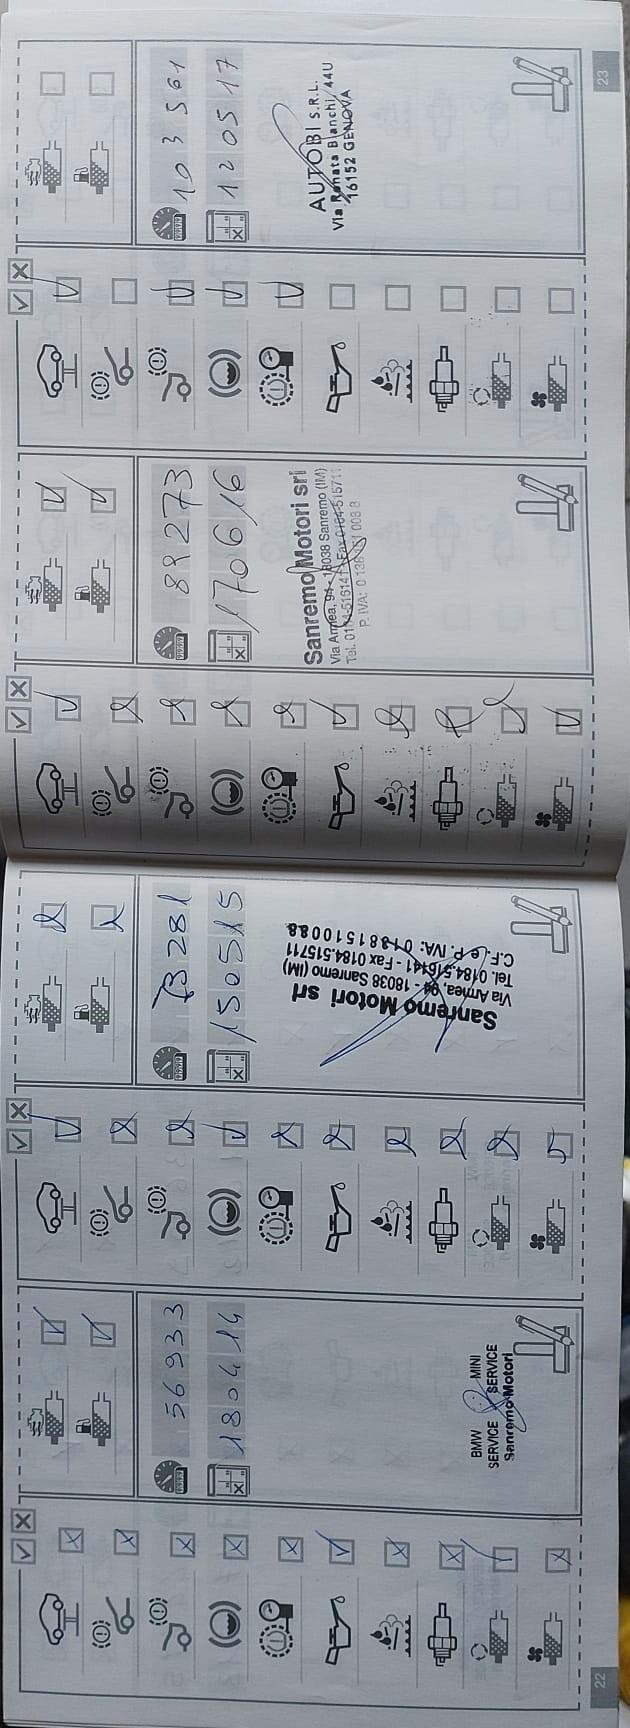 22
56933
180414
BMW MINI
SERVICE SERVICE
Sanremo Motori
73281
150515
Sanremo Motori srl
Via Armea, 94 - 18038 Sanremo (IM)
Tel. 0184.516141 - Fax 0184.515711
C.F. e P. IVA: 01381510088
89273
170616
Sanremo Motori srl
Via Armea, 94 - 18038 Sanremo (IM)
Tel. 0184-516141 Fax 0184-515711
P. IVA: 0 008 8
103561
120517
AUTOBI S.R.L.
Via Renata Bianchi, 44U
16152 GENOVA
23